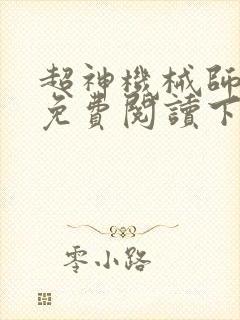 超神機械師
免費閱讀下
零小路